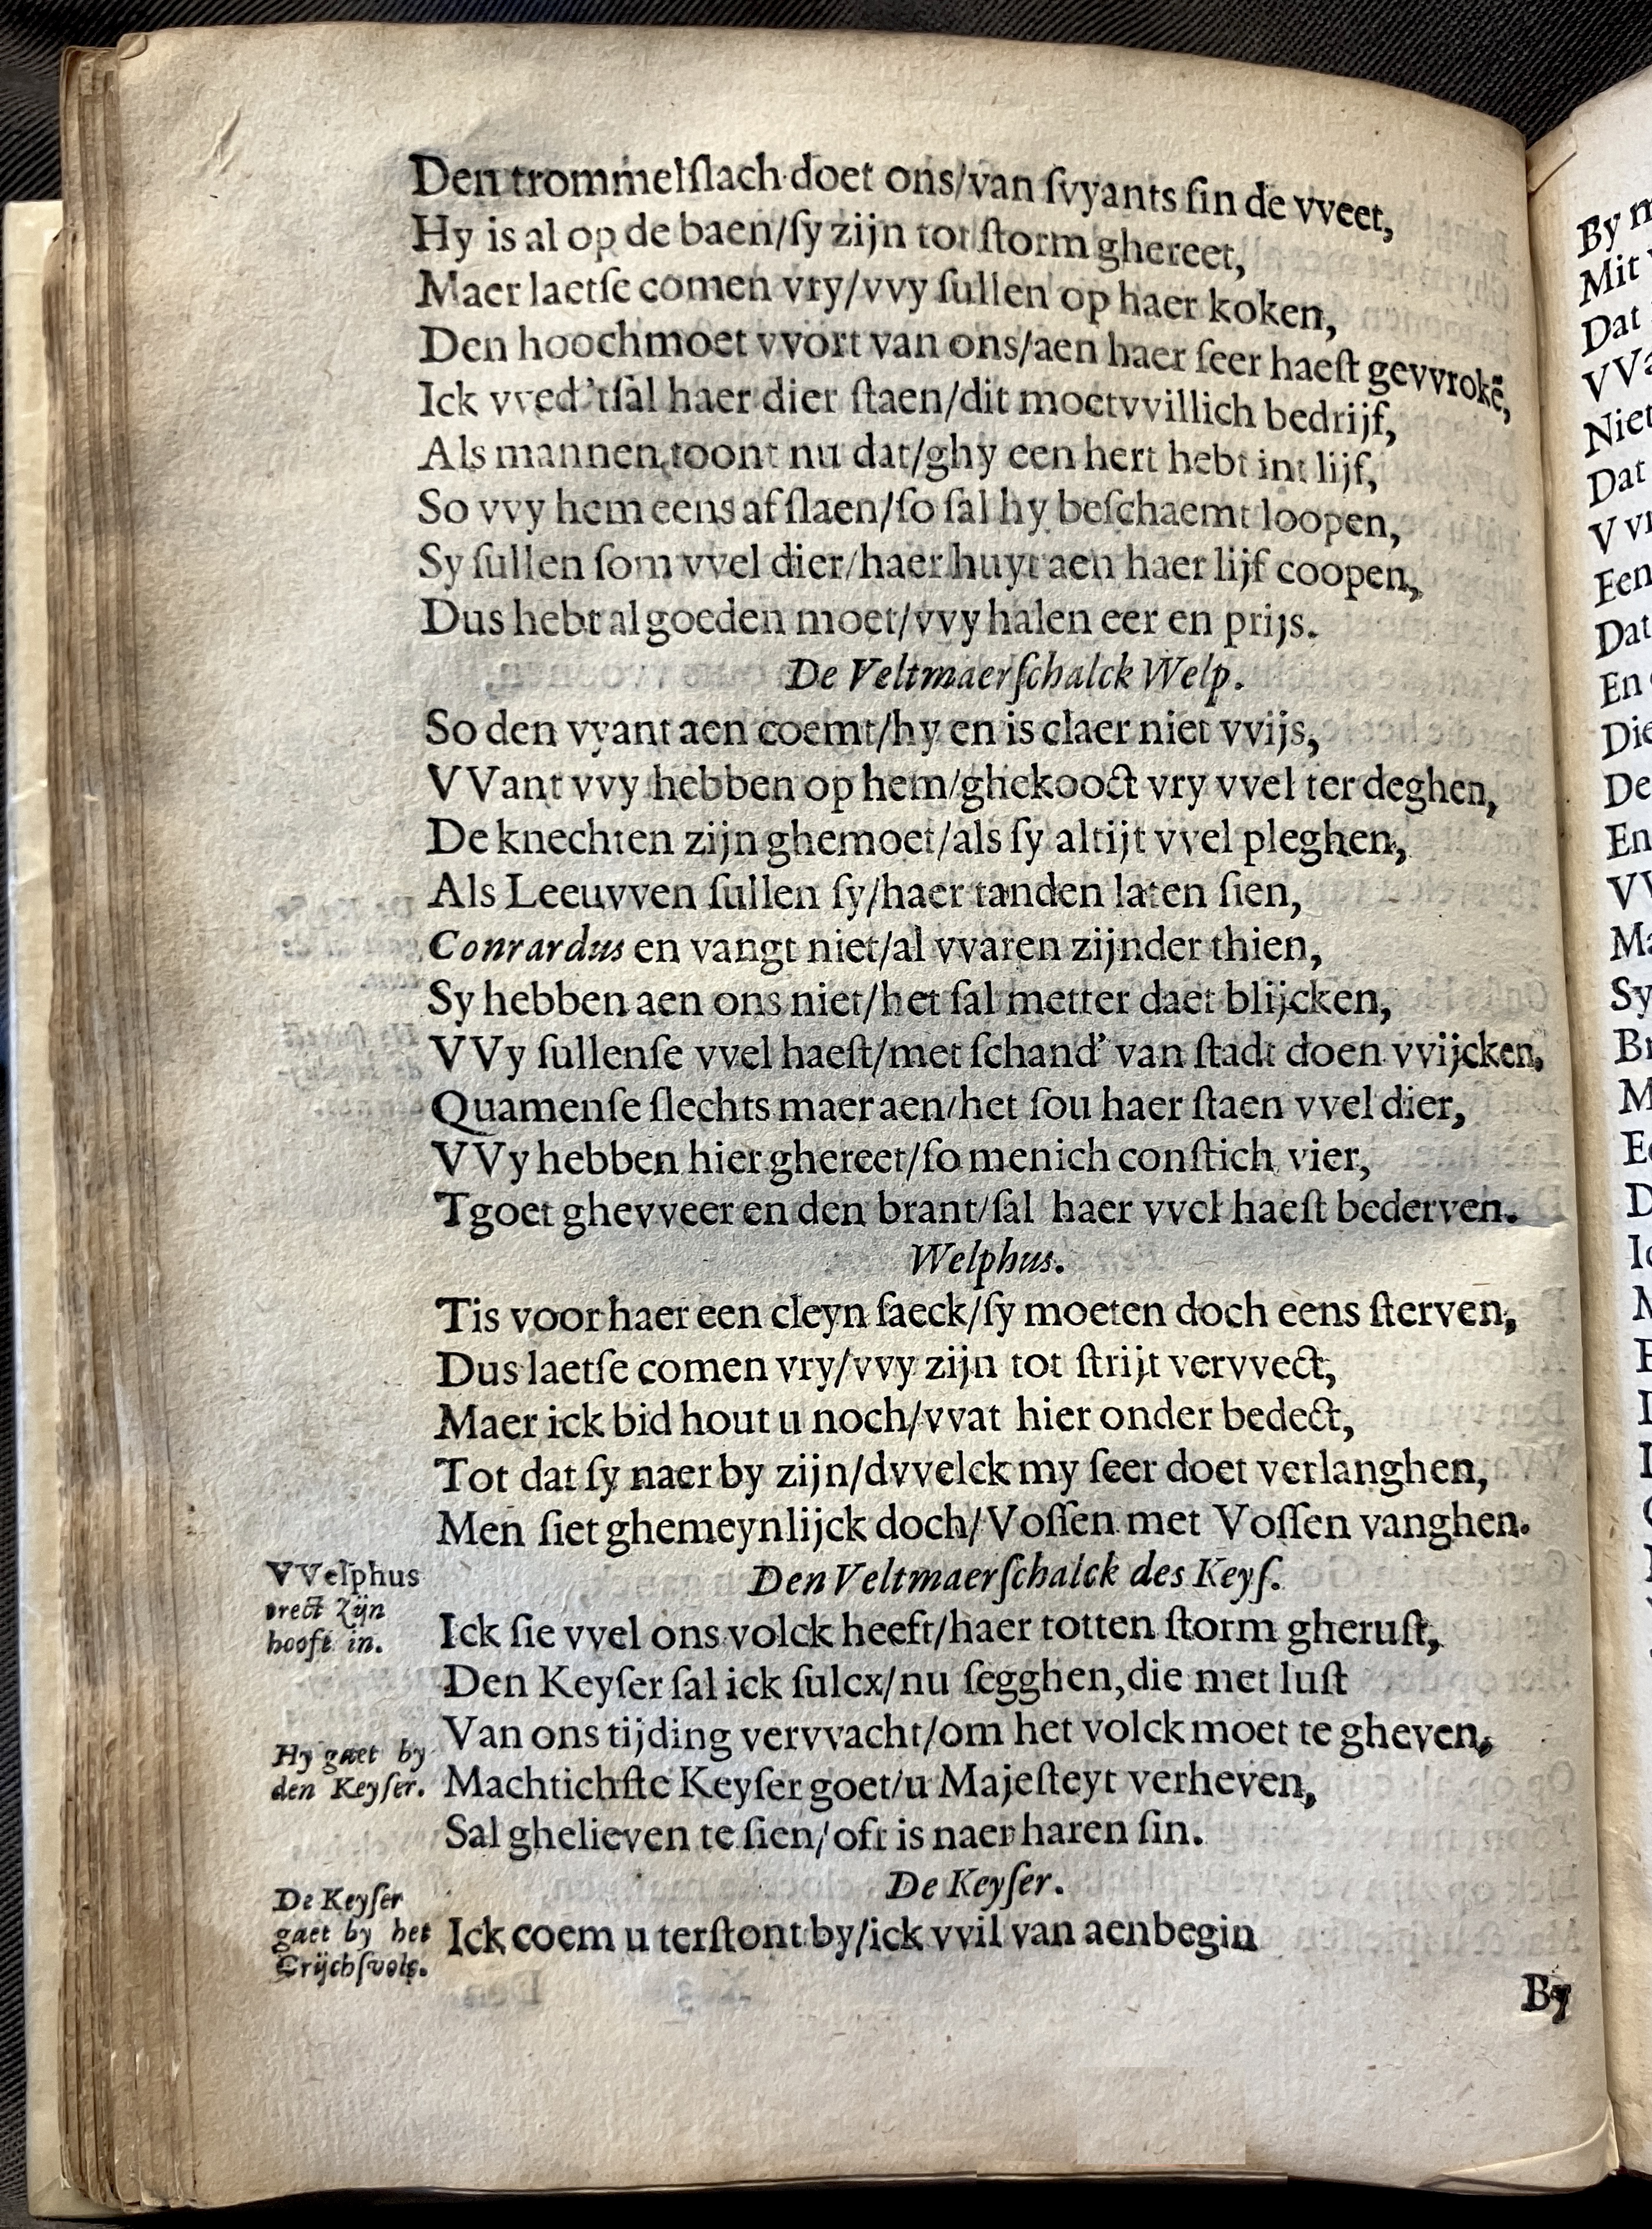 Den trommelſlach doet ons/van ſvyants ſin de vveet,
Hy is al op de baen/ſy zijn tot ſtorm ghereet,
Maer laetſe comen vry/vvy ſullen op haer koken,
Den hoochmoet vvort van ons/aen haer ſeer haeſt gevvrokẽ,
Ick vved'tſal haer dier ſtaen/dit moetvvillich bedrijf,
Als mannen toont nu dat/ghy een hert hebt int lijf,
So vvy hem eens af ſlaen/ſo ſal hy beſchaemt loopen,
Sy ſullen ſom vvel dier/haer huyt aen haer lijf coopen,
Dus hebt al goeden moet/vvy halen eer en prijs.
De Veltmaerſchalck Welp.
So den vyant aen coemt/hy en is claer niet vvijs,
VVant vvy hebben op hem/ghekooct vry vvel ter deghen,
De knechten zijn ghemoet/als ſy altijt vvel pleghen,
Als Leeuvven ſullen ſy/haer tanden laten ſien,
Conrardus en vangt niet/al vvaren zijnder thien,
Sy hebben aen ons niet/het ſal metter daet blijcken,
VVy ſullenſe vvel haeſt/met ſchand' van ſtadt doen vvijcken,
Quamenſe ſlechts maer aen/het ſou haer ſtaen vvel dier,
VVy hebben hier ghereet/ſo menich conſtich vier,
Tgoet ghevveer en den brant/ſal haer vvel haeſt bederven.
Welphus.
Tis voor haer een cleyn ſaeck/ſy moeten doch eens ſterven,
Dus laetſe comen vry/vvy zijn tot ſtrijt vervvect,
Maer ick bid hout u noch/vvat hier onder bedect,
Tot dat ſy naer by zijn/dvvelck my ſeer doet verlanghen,
Men ſiet ghemeynlijck doch/Voſſen met Voſſen vanghen.
VVelphus
trect zijn
hooft in.
Den Veltmaerſchalck des Keyſ.
Ick ſie vvel ons volck heeft/haer totten ſtorm gheruſt,
Den Keyſer ſal ick ſulcx/nu ſegghen,die met luſt
Van ons tijding vervvacht/om het volck moet te gheven,
Hy gaet by
den Keyſer.
Machtichſte Keyſer goet/u Majeſteyt verheven,
Sal ghelieven te ſien/oft is naer haren ſin.
De Keyſer.
De Keyſer
gaet by het
Crijchſvolc.
Ick coem u terſtont by/ick vvil van aenbegin
By